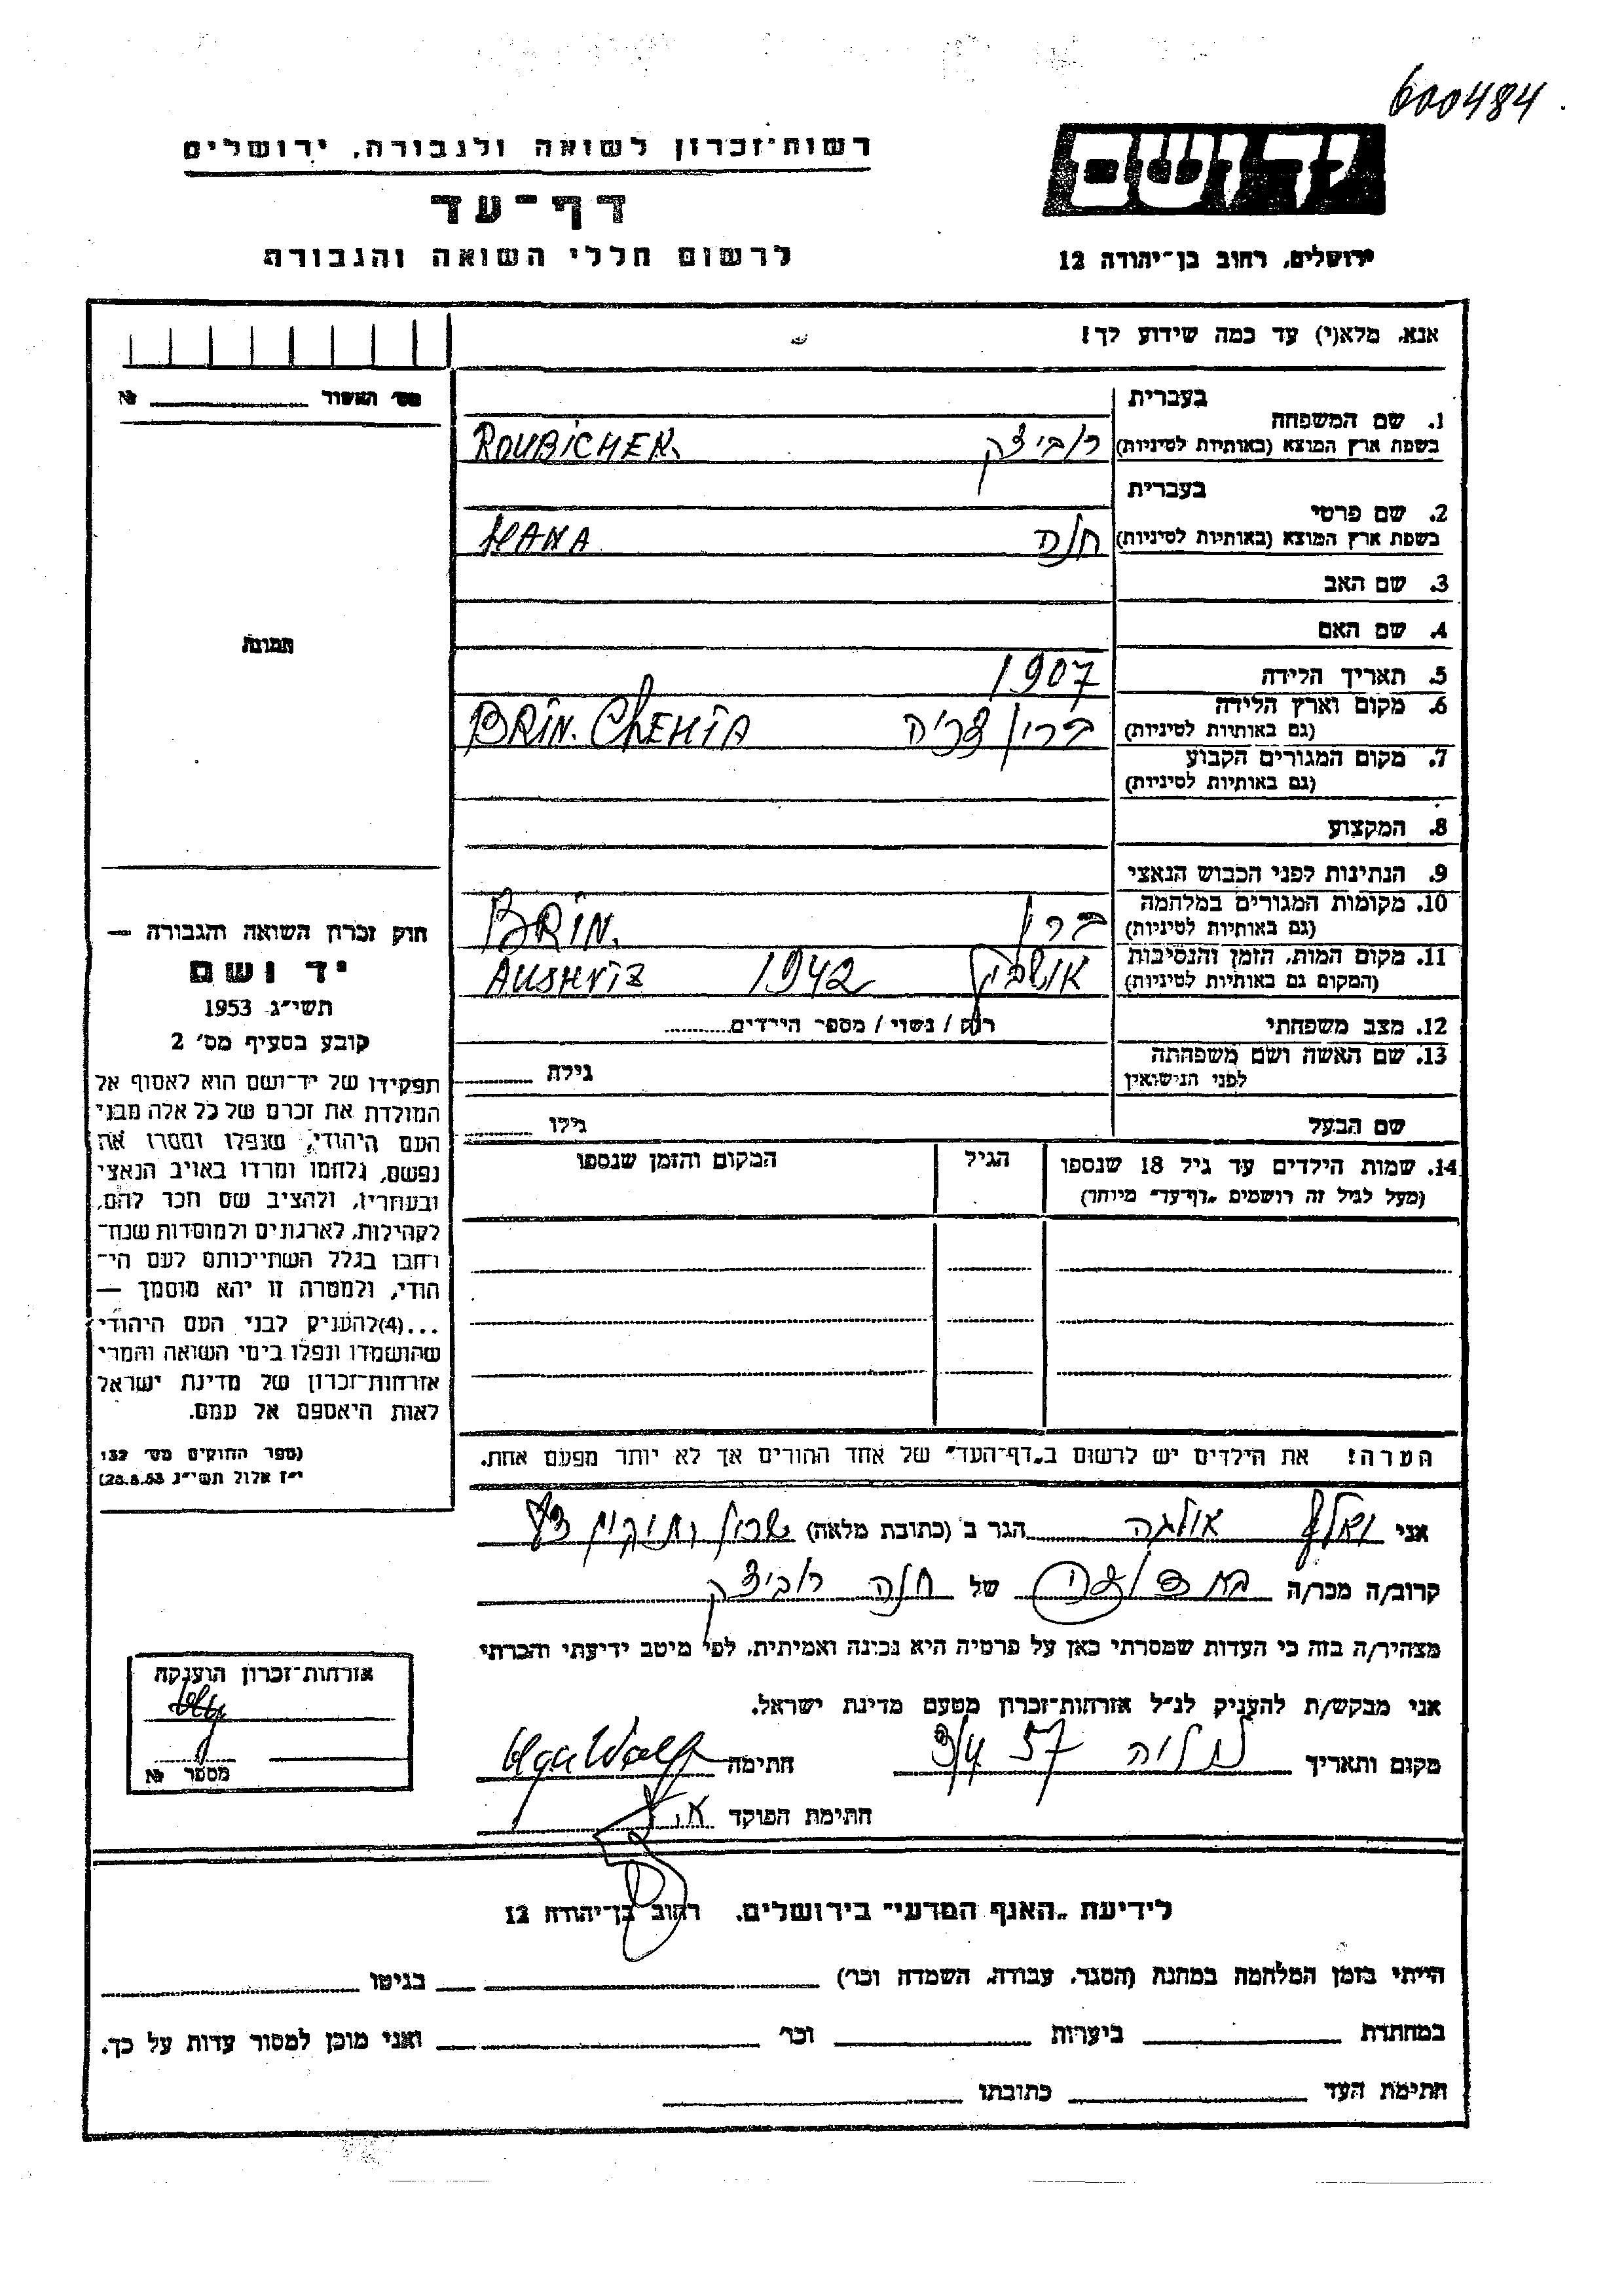 600484
יד ושם
ירושלים, רחוב בן-יהודה 12
רשות-זכרון לשואה ולגבורה, ירושלים
דף-עד
לרשום חללי השואה והגבורה
אנא, מלא(י) עד כמה שידוע לך!
מס' האשור №
תמונה
בעברית
1. שם המשפחה
בשפת ארץ המוצא (באותיות לטיניות) רוביצק ROUBICHEK
בעברית
2. שם פרטי
בשפת ארץ המוצא (באותיות לטיניות) חנה HANA
3. שם האב
4. שם האם
5. תאריך הלידה 1907
6. מקום וארץ הלידה
(גם באותיות לטיניות) ברין צכיה BRIN. CHEHIA
7. מקום המגורים הקבוע
(גם באותיות לטיניות)
8. המקצוע
9. הנתינות לפני הכבוש הנאצי
10. מקומות המגורים במלחמה
(גם באותיות לטיניות) ברין BRIN.
11. מקום המות, הזמן והנסיבות
(המקום גם באותיות לטיניות) 1942 AUSHVIZ
12. מצב משפחתי רוק / נשוי / מספר הילדים
13. שם האשה ושם משפחתה
לפני הנישואין גילה
שם הבעל גילו
14. שמות הילדים עד גיל 18 שנספו הגיל המקום והזמן שנספו
(מעל לגיל זה רושמים "דף-עד" מיוחד)
הערה! את הילדים יש לרשום ב"דף-העד" של אחד ההורים אך לא יותר מפעם אחת.
חוק זכרון השואה והגבורה —
יד ושם
תשי"ג 1953
קובע בסעיף מס' 2
תפקידו של יד-ושם הוא לאסוף אל
המולדת את זכרם של כל אלה מבני
העם היהודי, שנפלו ומסרו את
נפשם, נלחמו ומרדו באויב הנאצי
ובעוזריו, ולהציב שם וזכר להם,
לקהילות, לארגונים ולמוסדות שנח-
רבו בגלל השתייכותם לעם הי-
הודי, ולמטרה זו יהא מוסמך —
...(4) להעניק לבני העם היהודי
שהושמדו ונפלו בימי השואה והמרי
אזרחות-זכרון של מדינת ישראל
לאות היאספם אל עמם.
(ספר החוקים מס' 132
י"ז אלול תשי"ג 28.8.53)
אני וואלף אולגה הגר ב (כתובת מלאה)
קרוב/ה מכר/ה של חנה רוביצק
מצהיר/ה בזה כי העדות שמסרתי כאן על פרטיה היא נכונה ואמיתית, לפי מיטב ידיעתי והכרתי
אני מבקש/ת להעניק לנ"ל אזרחות-זכרון מטעם מדינת ישראל.
מקום ותאריך נתניה 3/4 57 חתימה Olga Wolf
חתימת הפוקד
אזרחות-זכרון הוענקה
מספר №
לידיעת "האגף המדעי" בירושלים, רחוב בן-יהודה 12
הייתי בזמן המלחמה במחנה (הסגר, עבודה, השמדה וכו') בגיטו
במחתרת ביערות וכו' ואני מוכן למסור עדות על כך.
חתימת העד כתובתו